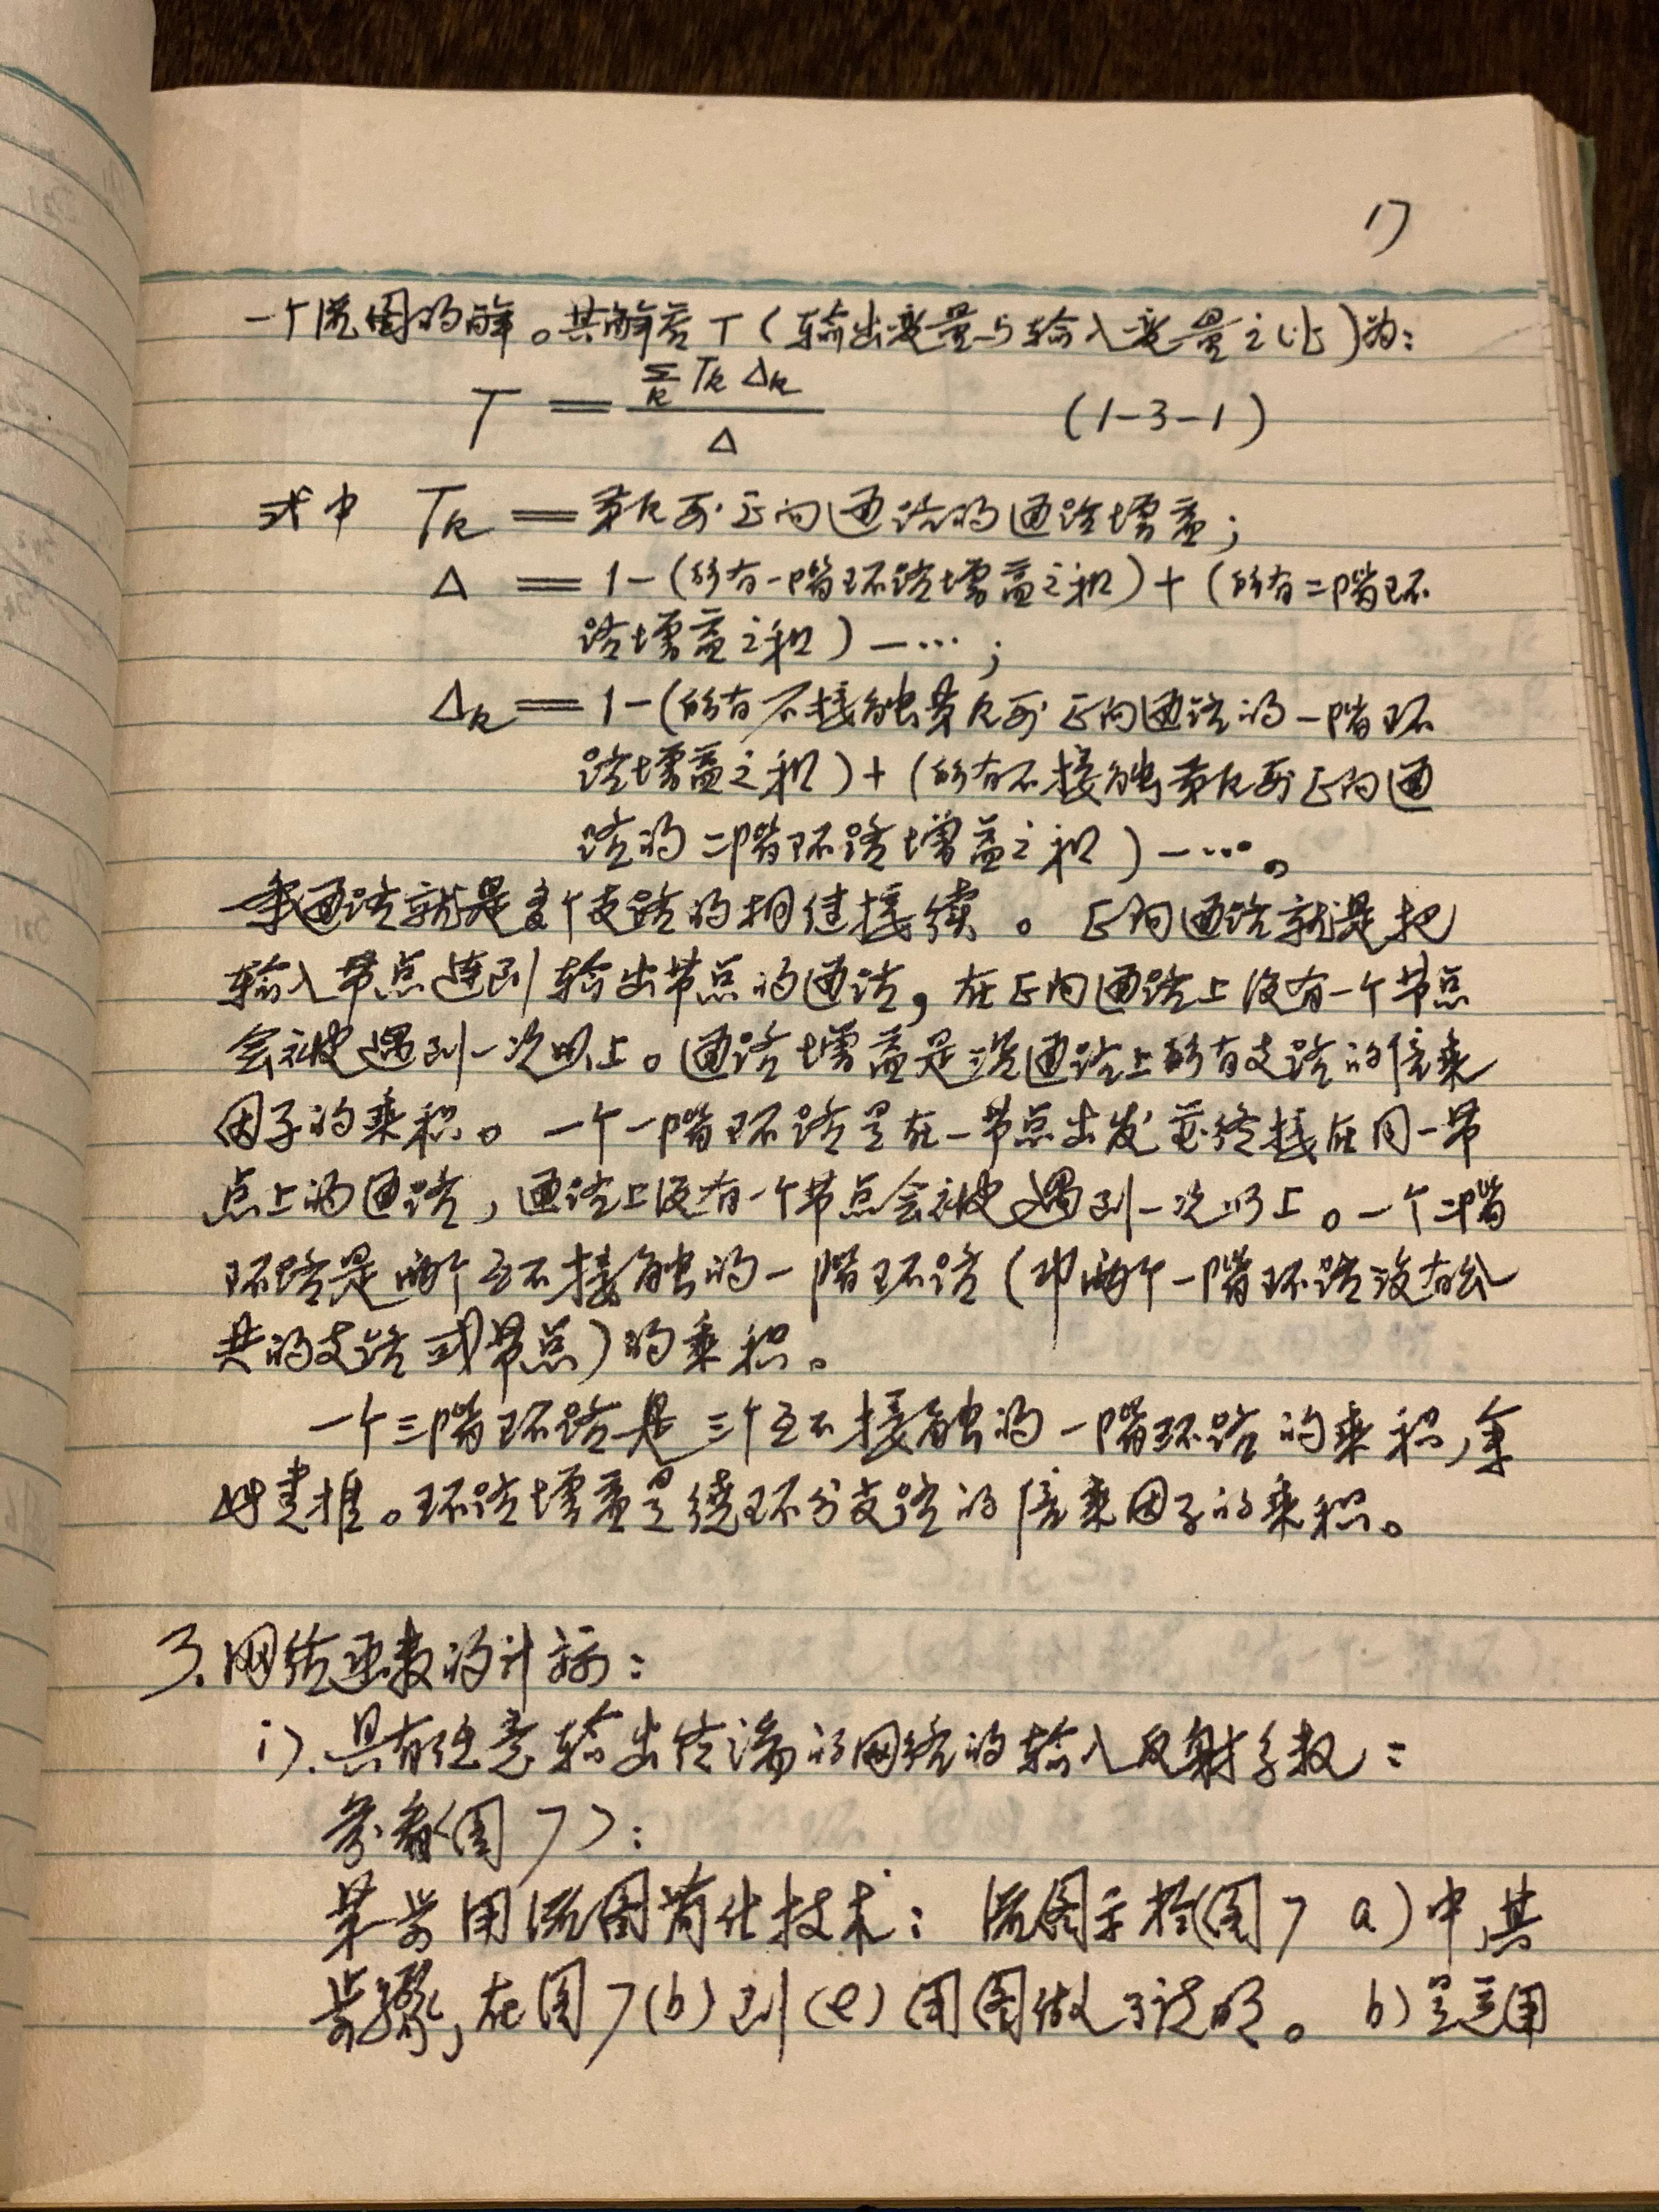 17
一个流图的解。其解答T(输出变量与输入变量之比)为:
T = Σ_k T_k Δ_k / Δ (1-3-1)
式中 T_k = 第k列正向通路的通路增益;
Δ = 1-(所有一阶环路增益之和)+(所有二阶环
路增益之和)-…;
Δ_k = 1-(所有不接触第k列正向通路的一阶环
路增益之和)+(所有不接触第k列正向通
路的二阶环路增益之和)-…。
通路就是多个支路的相继接续。正向通路就是把
输入节点连到输出节点的通路,在正向通路上没有一个节点
会被遇到一次以上。通路增益是沿通路上所有支路的倍乘
因子的乘积。一个一阶环路是在一节点出发並终接在同一节
点上的通路,通路上没有一个节点会被遇到一次以上。一个二阶
环路是两个互不接触的一阶环路(即两个一阶环路没有公
共的支路或节点)的乘积。
一个三阶环路是三个互不接触的一阶环路的乘积,余
此类推。环路增益是绕环分支路的倍乘因子的乘积。
3.网络函数的计算:
i).具有任意输出终端的网络的输入反射系数:
参看(图7):
用流图简化技术:流图示于(图7 a)中,其
步骤,在图7(b)到(e)用图做了说明。b)是运用